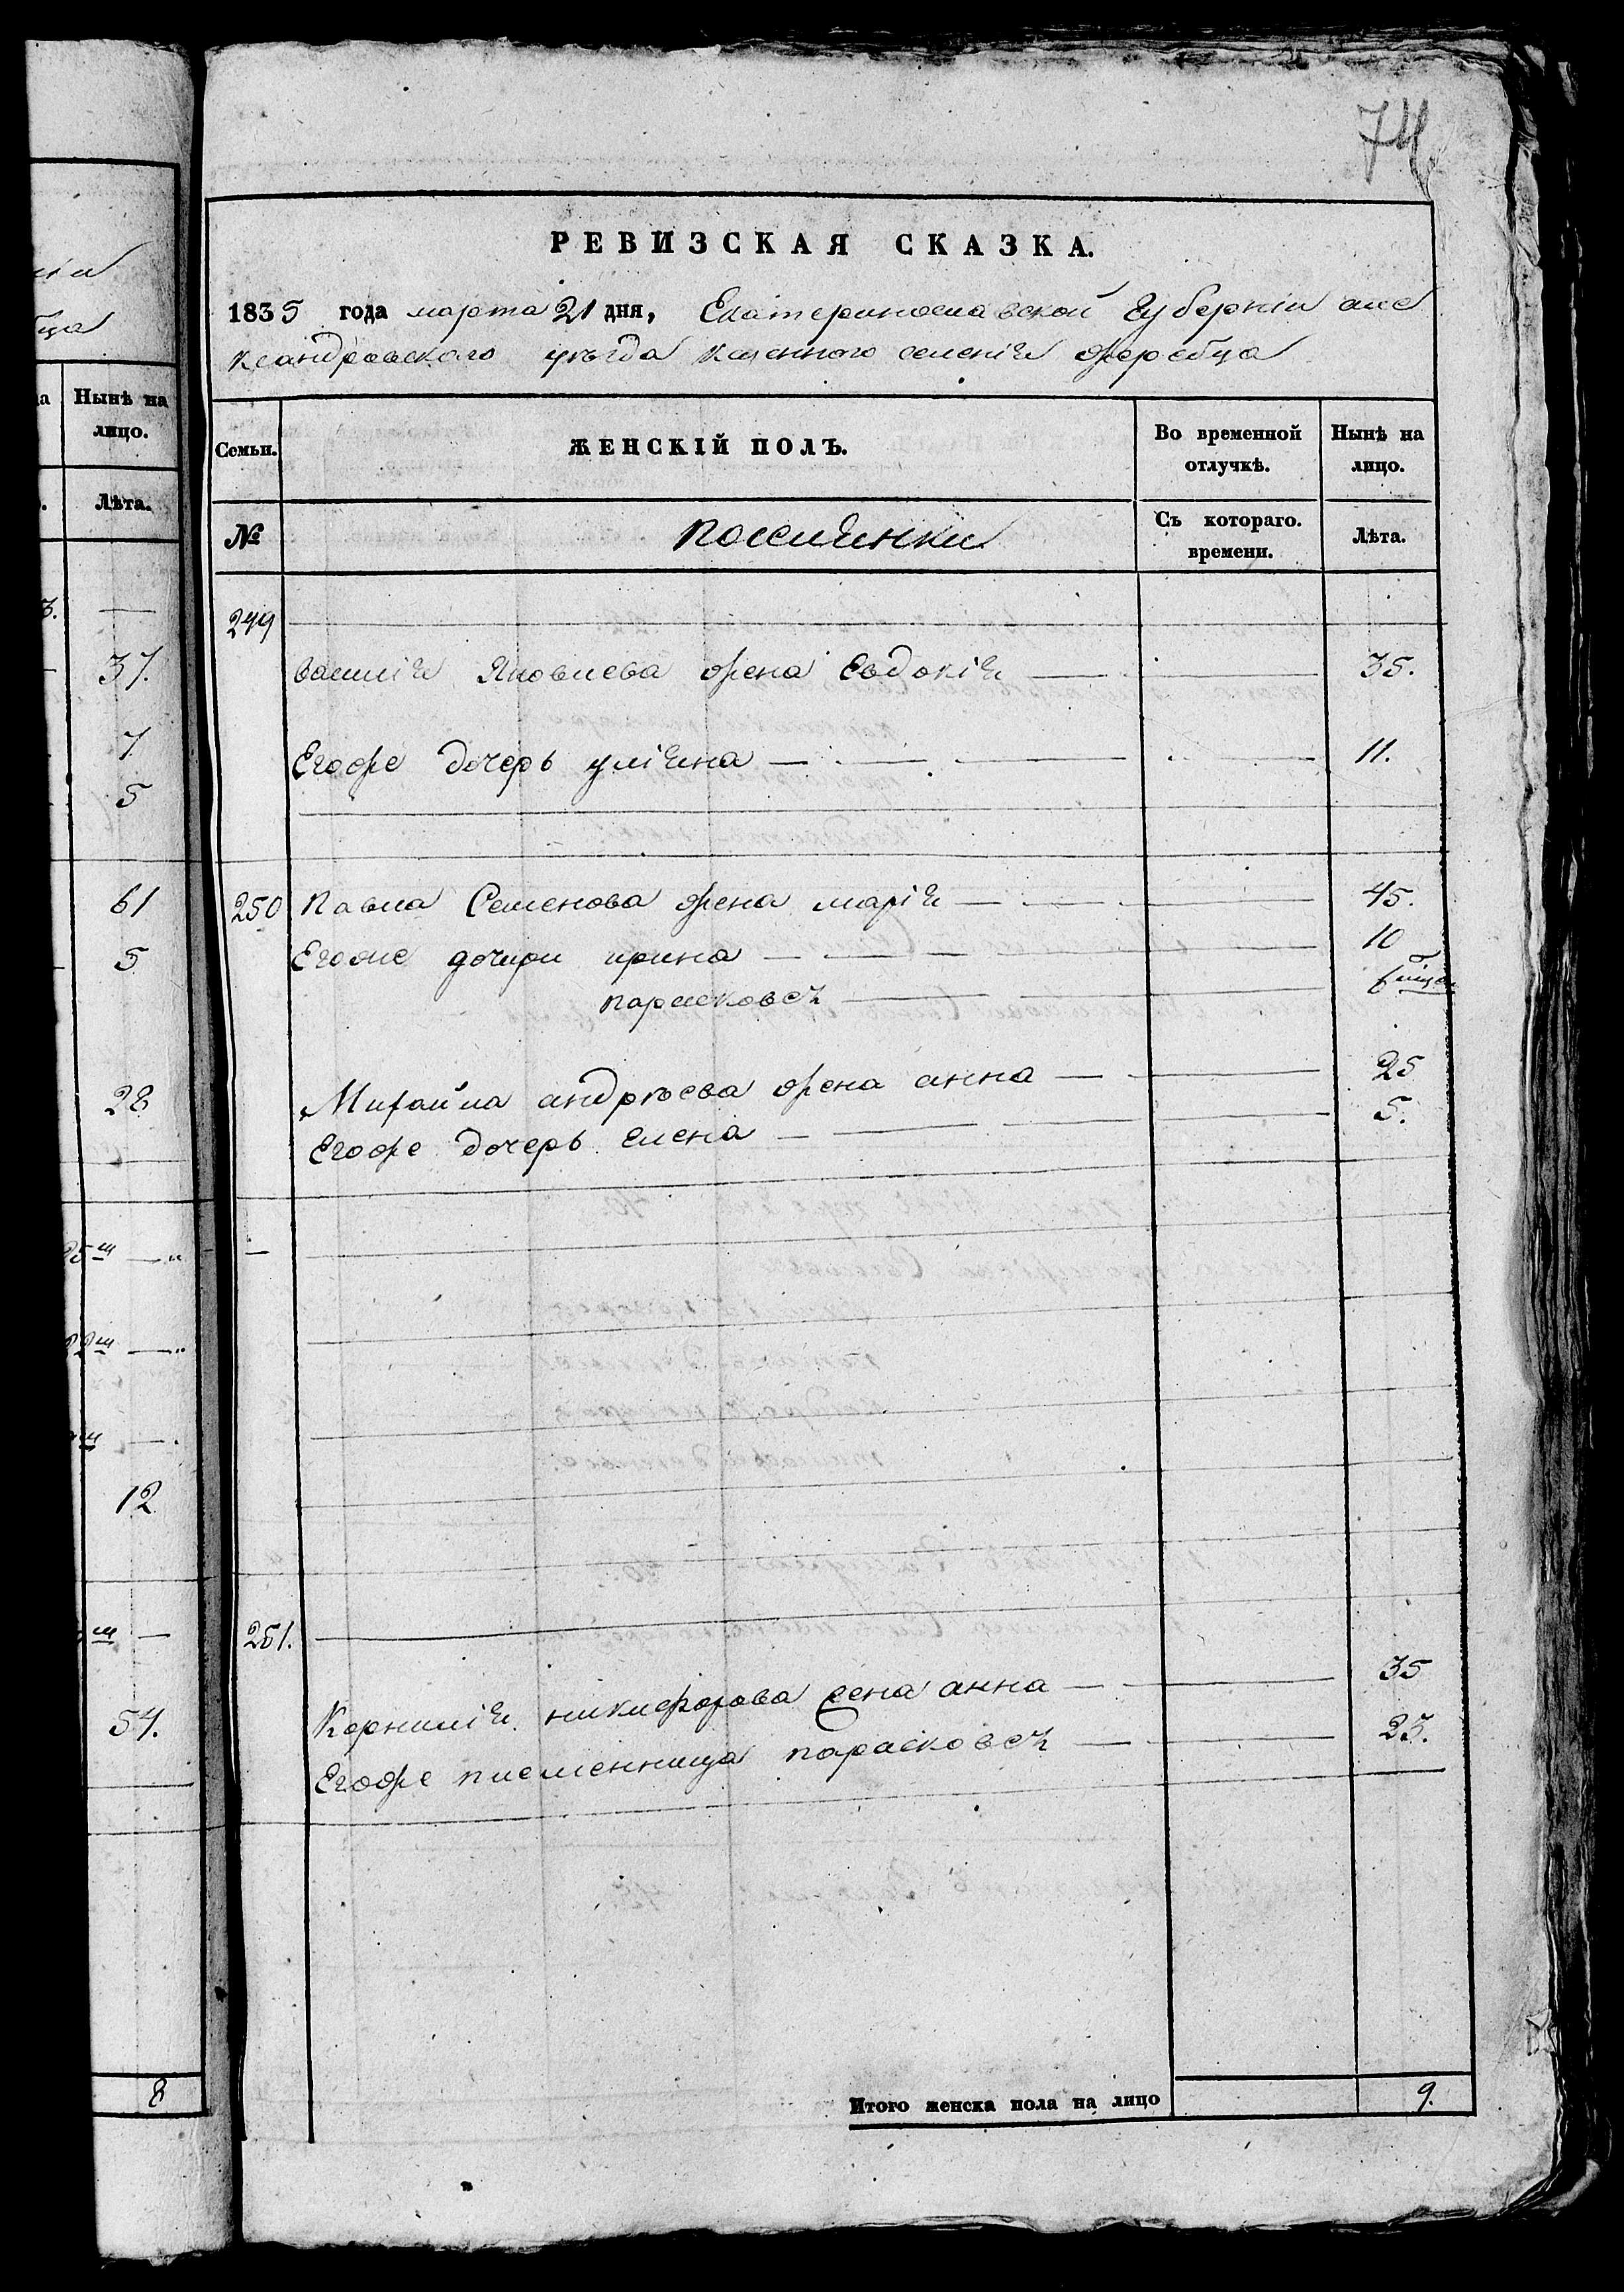 74
РЕВИЗСКАЯ СКАЗКА.
1835 года марта 21 дня, Екатеринославской Губерніи але
ксандровского уѣзда казенного селенія жеребца
Семьи.
ЖЕНСКІЙ ПОЛЪ.
Во временной отлучкѣ.
Нынѣ на лицо.
№
поселянки
Съ котораго. времени.
Лѣта.
249
василія Яковлева жена Евдокія 35.
Егоже дочерь уліяна 11.
250 Павла Семенова жена марія 45.
Егоже дочири ирина 10
парасковея 6
Михайла андрѣева жена анна 25
Егоже дочерь елена 5.
251.
Корнилія никифорова жена анна 35
Егоже племенница парасковея 25.
Итого женска пола на лицо 9.
Нынѣ на
лицо.
Лѣта.
37.
7
5
61
5
28
12
54.
8